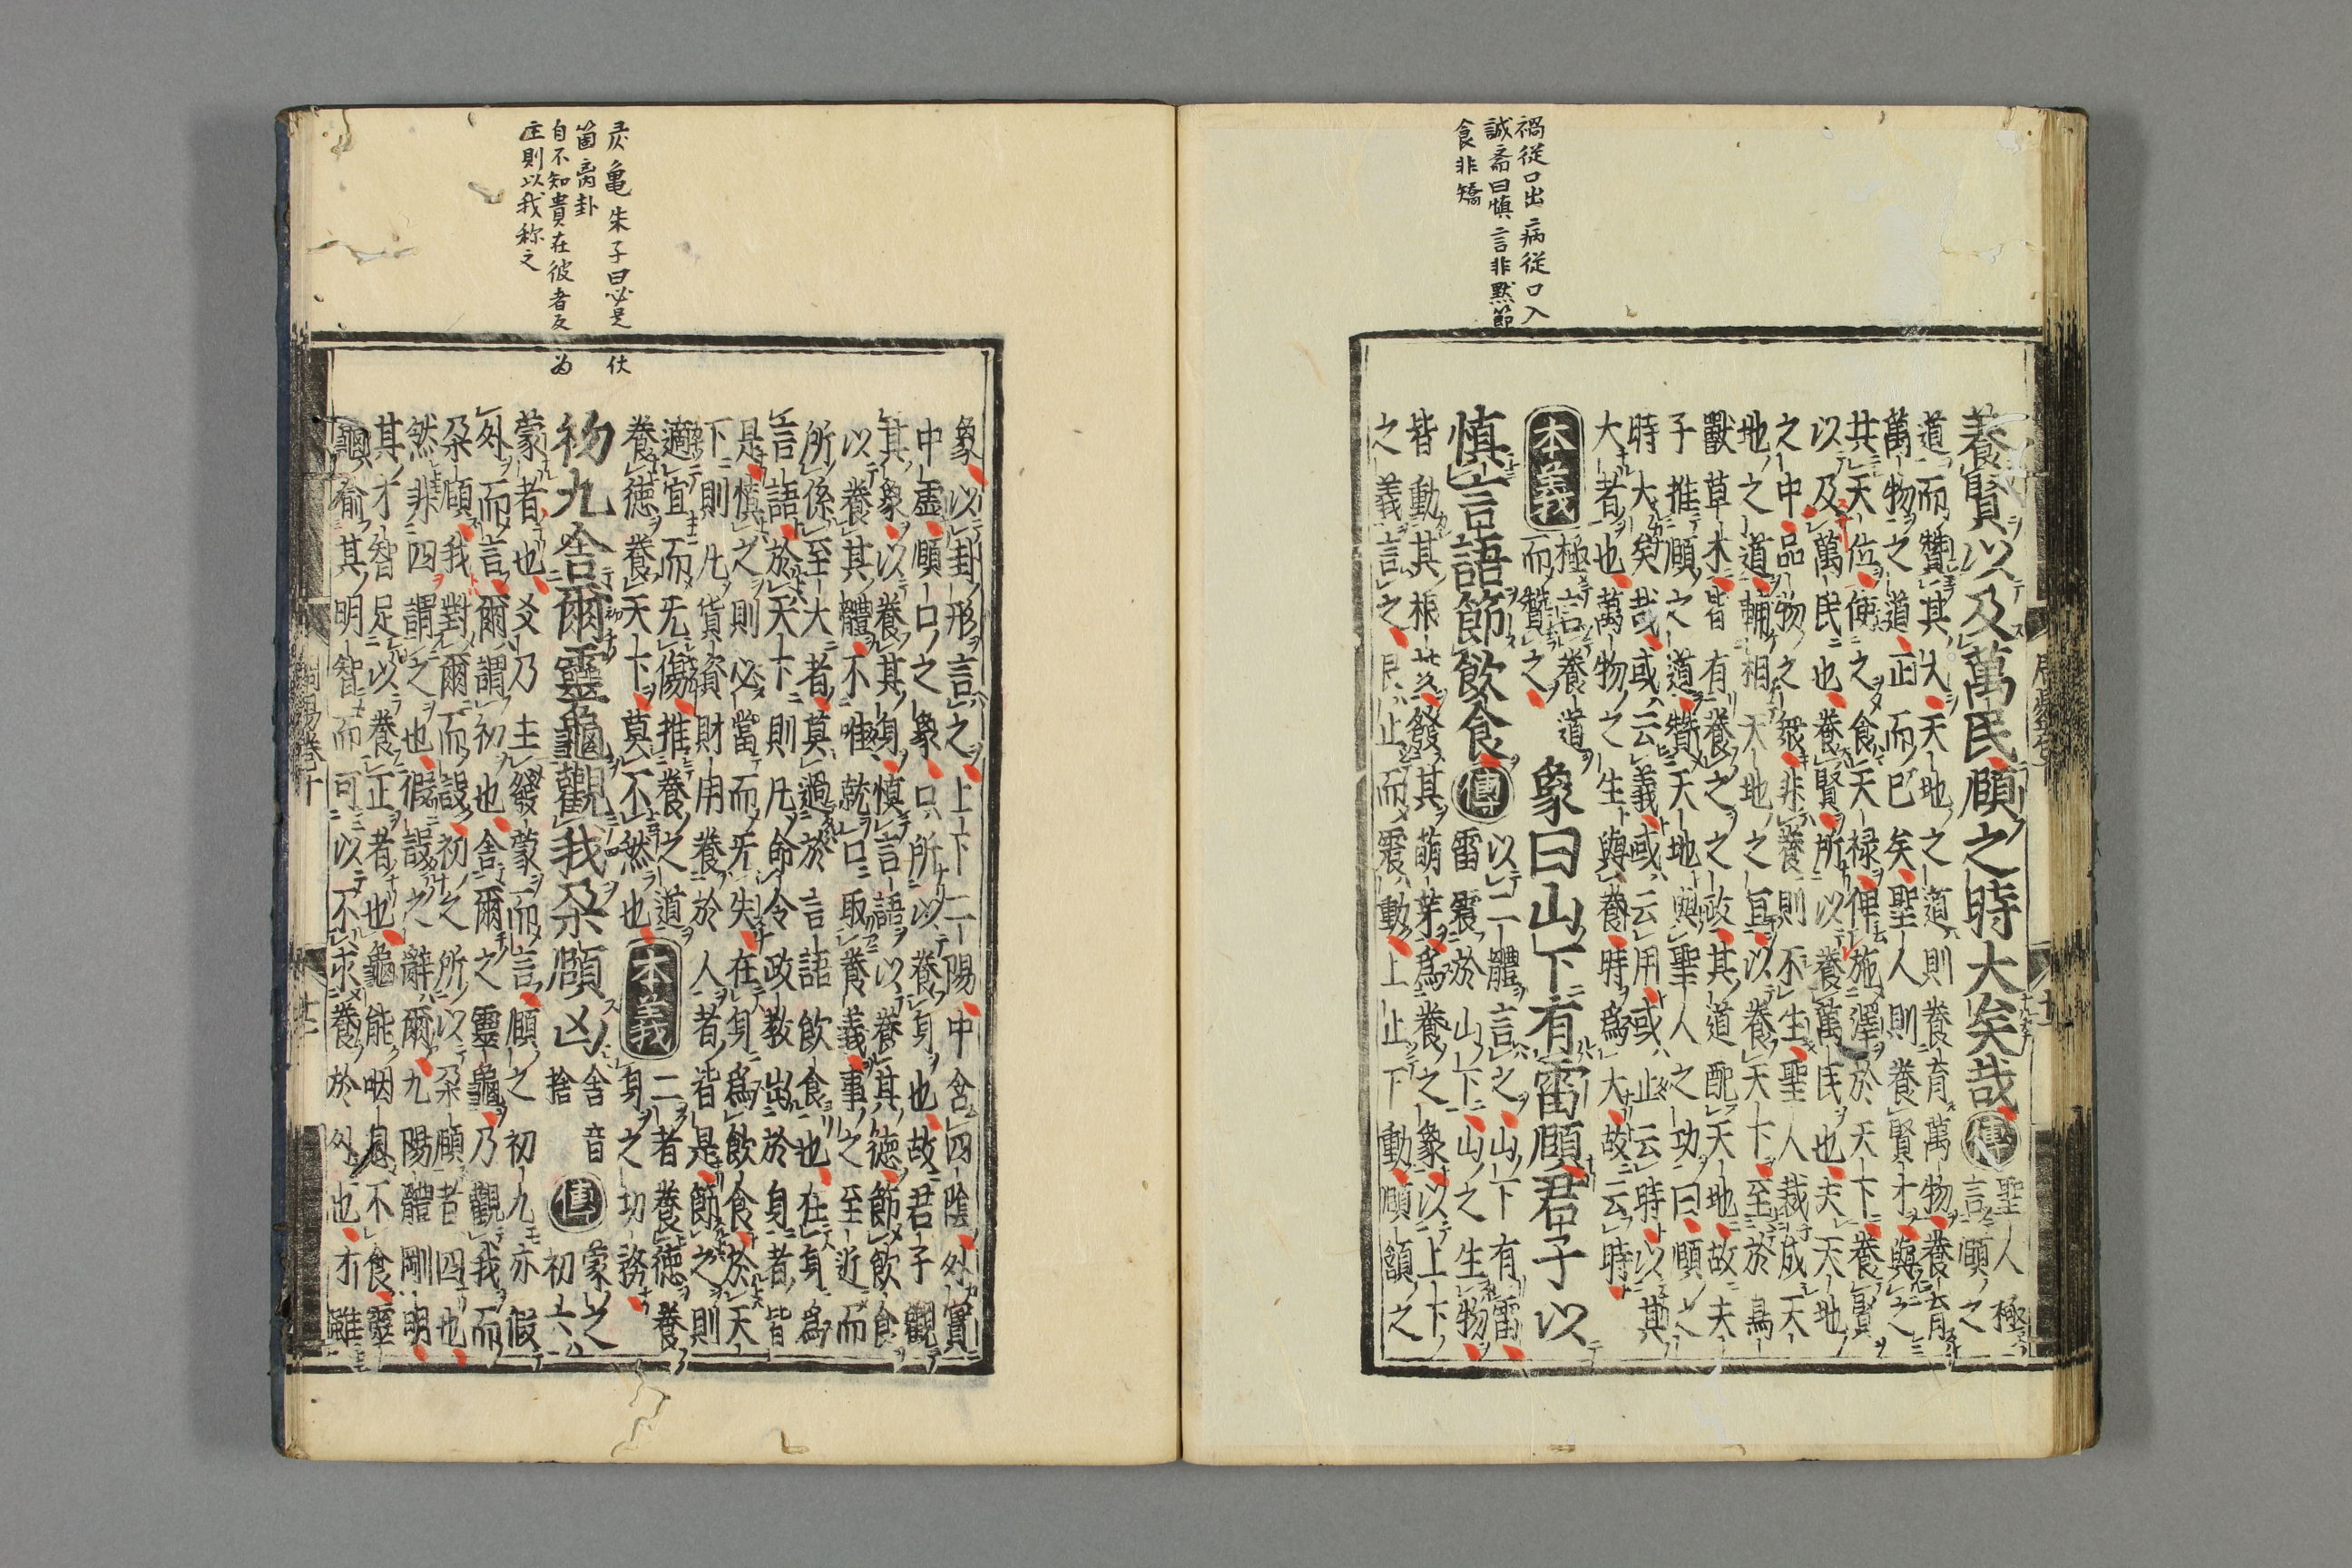 禍従口出病従口入
誠斎曰慎言非黙節
食非矯
養賢以及萬民頤之時大矣哉傳聖人極
言頤之
道而贊其大天地之道則養育萬物養育
萬物之道正而已矣聖人則養賢才與之
共天位使之食天禄俾施澤於天下養賢
以及萬民也養賢所以養萬民也夫天地
之中品物之衆非養則不生聖人裁成天
地之道輔相天地之宜以養天下至於鳥
獸草木皆有養之之政其道配天地故夫
子推頤之道贊天地與聖人之功曰頤之
時大矣哉或云義或云用或止云時以其
大者也萬物之生與養時爲大故云時
本義極言養道
而贊之
象曰山下有雷頤君子以
慎言語節飲食傳以二體言之山下有雷
雷震於山下山之生物
皆動其根荄發其萌芽爲養之象以上下
之義言之艮止而震動上止下動頤頷之
灵亀朱子曰必是伏
箇离卦
自不知貴在彼者反為
主則以我称之
象以卦形言之上下二陽中含四陰外實
中虛頤口之象口所以養身也故君子觀
其象以養其身慎言語以養其德節飲食
以養其體不唯就口取養義事之至近而
所係至大者莫過於言語飲食也在身爲
言語於天下則凡命令政教出於身者皆
是慎之則必當而无失在身爲飲食於天
下則凡貨資財用養於人者皆是節之則
適宜而无傷推養之道養德養
天下莫不然也本義二者養德養
身之切務
初九舍爾靈龜觀我朶頤凶舍音
捨
傳蒙之
初六
蒙者也爻乃主發蒙而言頤之初九亦假
外而言爾謂初也舍爾之靈龜乃觀我而
朶頤我對爾而設初之所以朶頤者四也
然非四謂之也假設之辭爾九陽體剛明
其才智足以養正者也龜能咽息不食靈
龜喻其明智而可以不求養於外也才雖
周易卷十